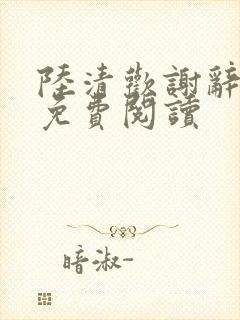 陸清歡謝辭
免費閱讀
暗淑-